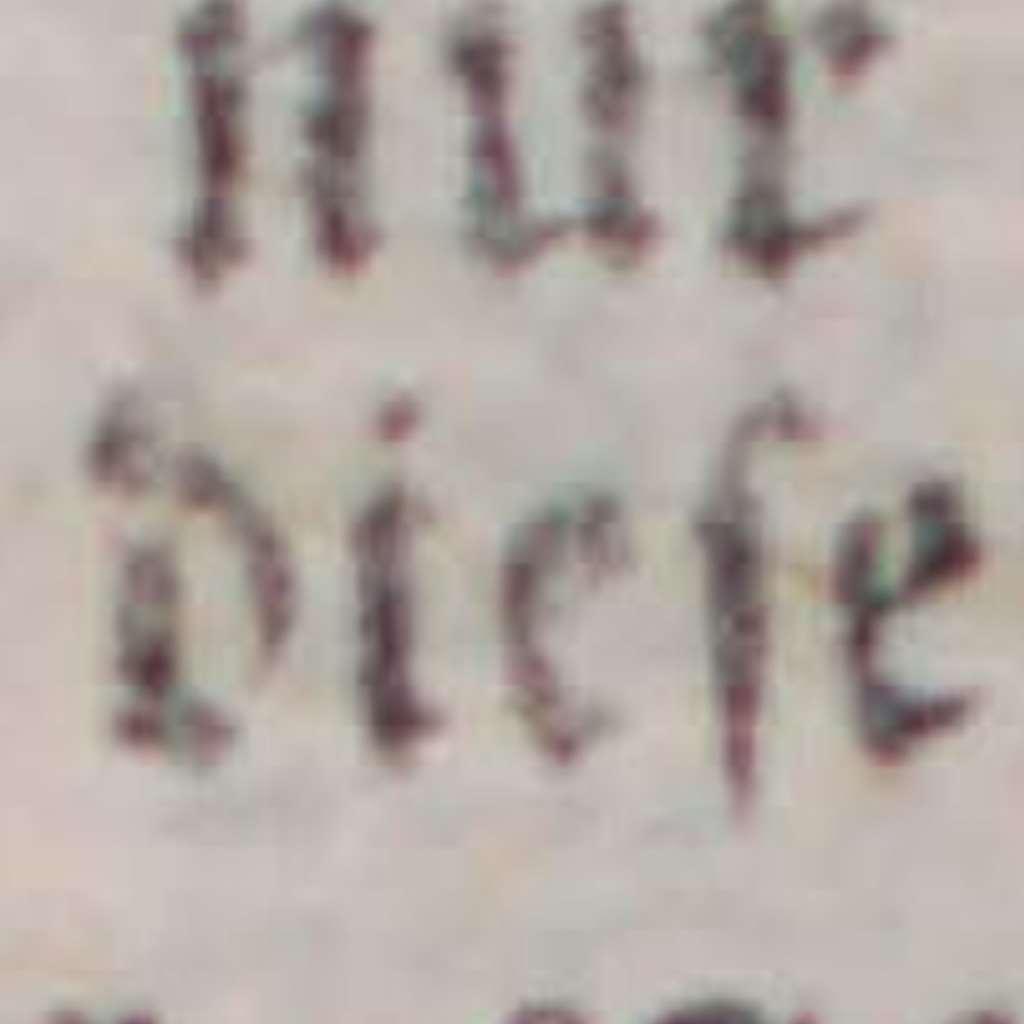 nur
Dieſe